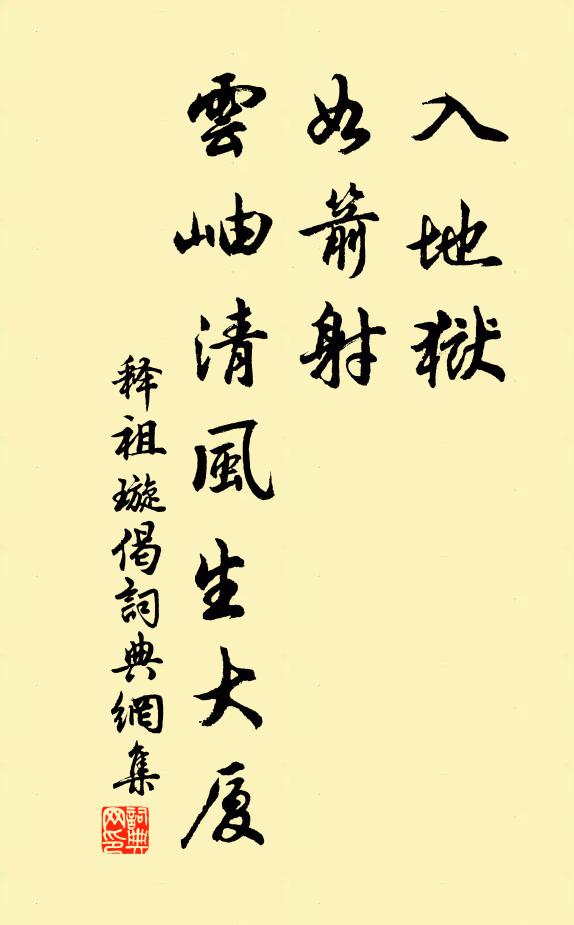 入地獄
如箭射
雲岫清風生大厦
释祖璇偈詞典網集
詞典网印